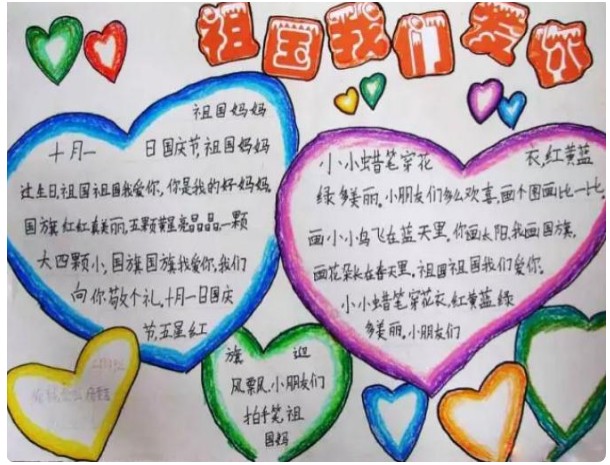 祖国我们爱你
祖国妈妈
十月一 日国庆节,祖国妈妈
过生日,祖国祖国我爱你,你是我的好妈妈,
国旗红红真美丽,五颗黄星亮晶晶,一颗
大四颗小,国旗国旗我爱你,我们
向你敬个礼,十月一日国庆
节,五星红
旗 迎
风飘飘,小朋友们
拍手笑,祖
国妈
小小蜡笔穿花 衣,红黄蓝
绿多美丽。小朋友们多么欢喜,画个图画比一比,
画小小鸟飞在蓝天里。你画太阳,我画国旗,
画花朵长在春天里。祖国祖国我们爱你。
小小蜡笔穿花衣,红黄蓝绿
多美丽。小朋友们